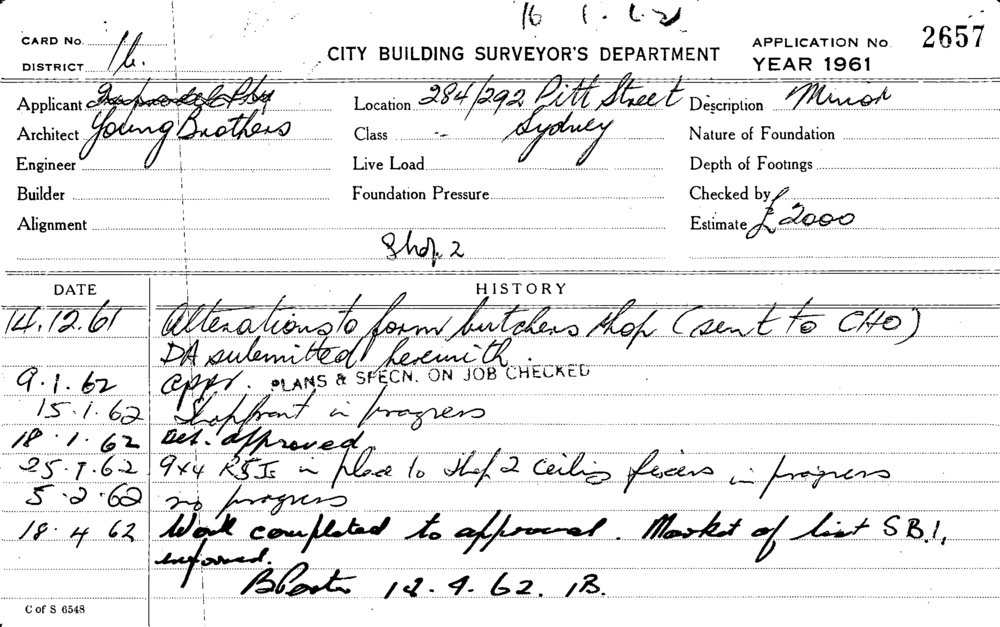 16 1. 62
CARD No. CITY BUILDING SURVEYOR'S DEPARTMENT APPLICATION No. 2657
DISTRICT 16. YEAR 1961
Applicant Location 284/292 Pitt Street Description Minor
Architect Young Brothers Class -- Sydney Nature of Foundation
Engineer Live Load Depth of Footings
Builder Foundation Pressure Checked by
Alignment Estimate £2000
Shop 2
DATE HISTORY
14.12.61 Alterations to form butchers shop (sent to CHO)
DA submitted herewith.
9.1.62 appr. PLANS & SPECN. ON JOB CHECKED
15.1.62 Shopfront in progress
18.1.62 approved
25.1.62 9x4 RSJs in place to shop 2 ceiling fixers in progress
5.2.62 no progress
18.4.62 Work completed to approval. Marked of list S.B.1,
informed.
B Porter 18.4.62. 1B.
C of S 6548